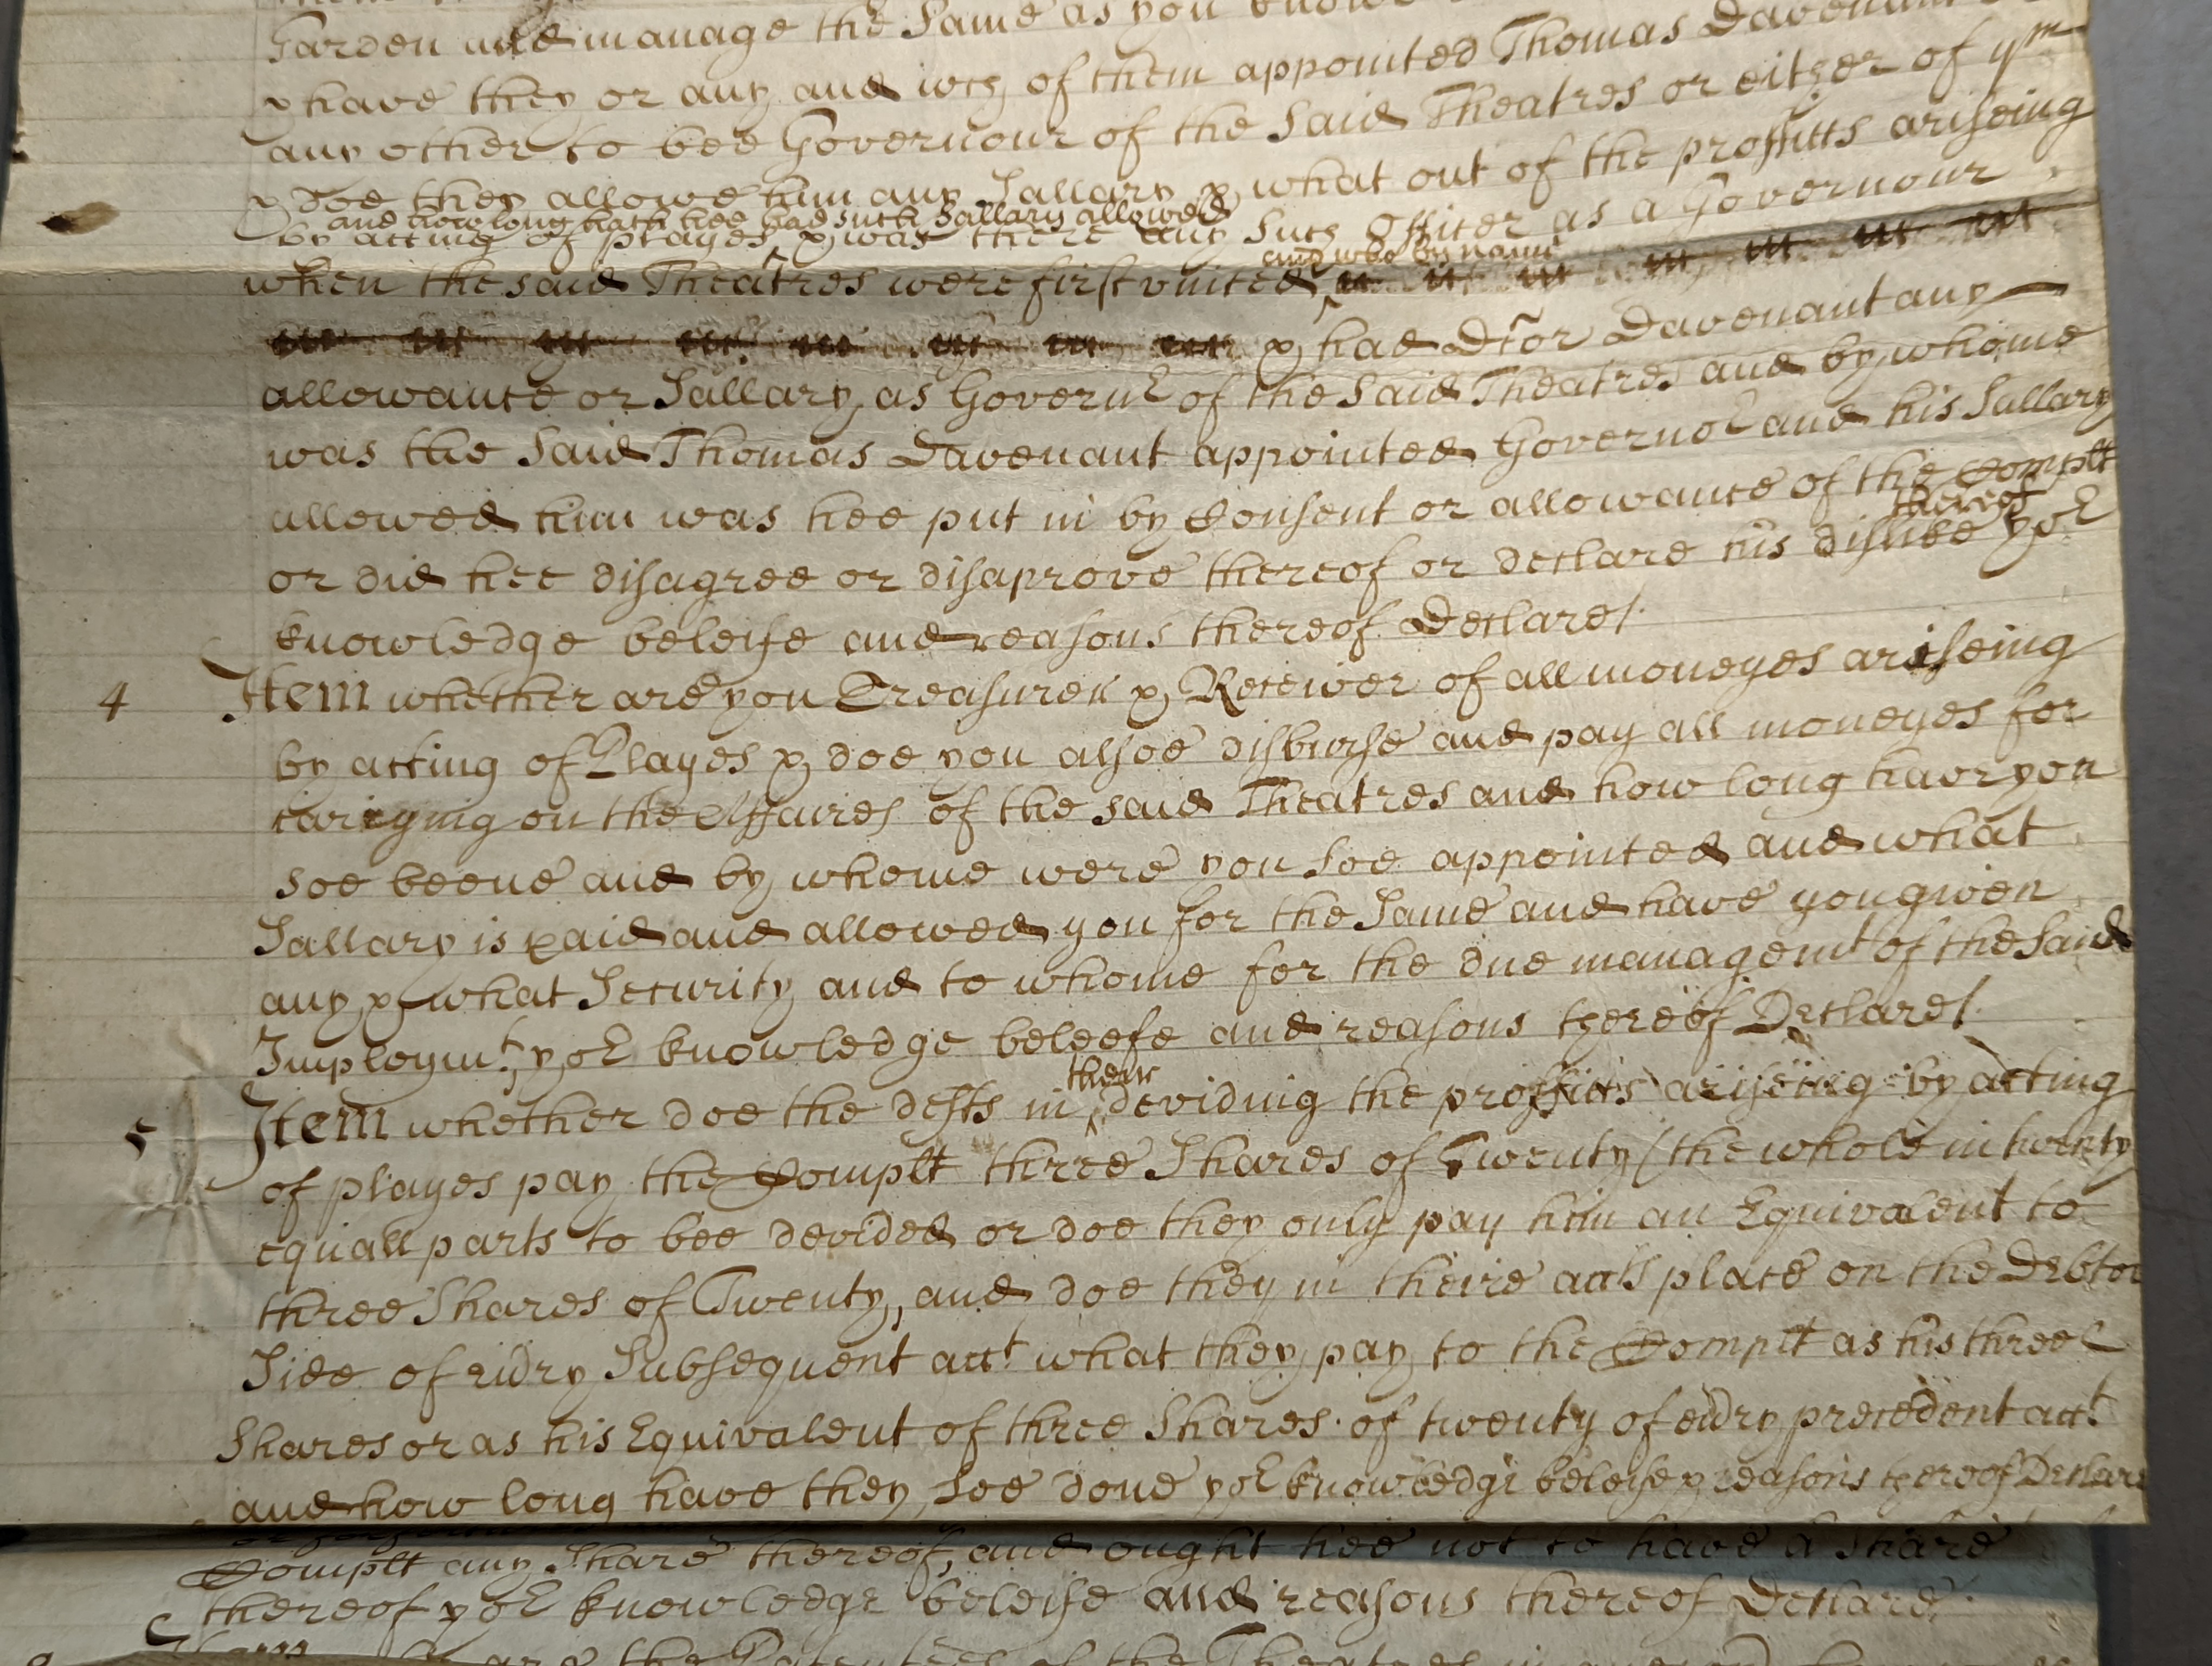 Garden and manage the Same as you
& have they or any and wch of them appointed Thomas Davenant
any other to bee Governour of the Said Theatres or either of ym
& doe they allowe him any Sallary & what out of the proffitts ariseing
and how long hath hee had such Sallary allowed
by acting of playes & was there any Such Officer as a Governour
and who by name
when the said Theatres were first united
& had Dcor Davenant any
allowance or Sallary as Governr of the Said Theatres and by whome
was the Said Thomas Davenant appointed Governor and his Sallary
allowed him was hee put in by Consent or allowance of the Complt
thereof
or did hee disagree or disaprove thereof or declare his dislike yor
knowledge beleife and reasons thereof Declare/.
4 Item whether are you Treasurer & Receiver of all moneyes ariseing
by acting of Playes & doe you alsoe disburse and pay all moneyes for
carrying on the Affaires of the said Theatres and how long have you
soe beene and by whome were you soe appointed and what
Sallary is paid and allowed you for the Same and have you given
any & what Security and to whome for the due managemt of the Said
Imploymt, yor knowledge beleefe and reasons thereof Declare/.
their
5 Item whether doe the defts in deviding the proffitts ariseing by acting
of playes pay the Complt three Shares of Twenty (the whole in twenty
equall parts to bee devided or doe they only pay him an Equivalent to
three Shares of Twenty, and doe they in theire accts place on the Debtor
Side of every Subsequent acct what they pay to the Complt as his three
Shares or as his Equivalent of three Shares of twenty of every precedent acct
and how long have they soe done yor knowledge beleife & reasons thereof Declare
Complt any Share thereof, and ought hee not to have a Share
thereof yor knowledge beleife and reasons thereof Declare
the Patentees of the Theatres in